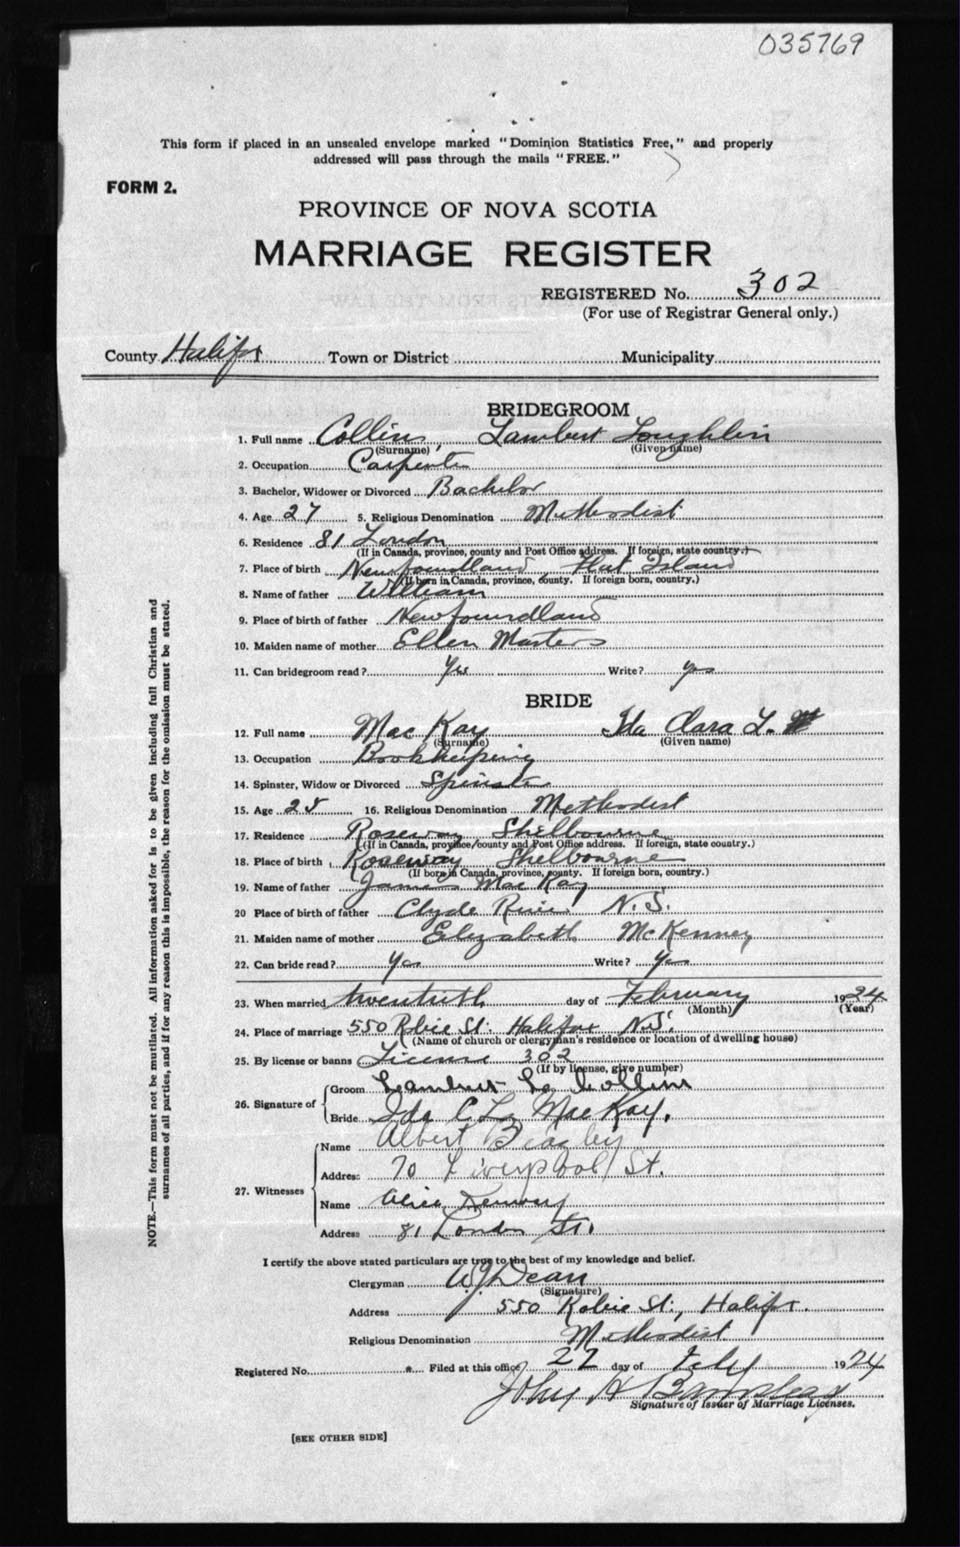 035769
This form if placed in an unsealed envelope marked "Dominion Statistics Free," and properly
addressed will pass through the mails "FREE."
FORM 2.
PROVINCE OF NOVA SCOTIA
MARRIAGE REGISTER
REGISTERED No. 302
(For use of Registrar General only.)
County Halifax Town or District Municipality
BRIDEGROOM
1. Full name Collins, Lambert Loughlin
(Surname) (Given name)
2. Occupation Carpenter
3. Bachelor, Widower or Divorced Bachelor
4. Age 27 5. Religious Denomination Methodist
6. Residence 81 London
(If in Canada, province, county and Post Office address. If foreign, state country.)
7. Place of birth Newfoundland Flat Island
(If born in Canada, province, county. If foreign born, country.)
8. Name of father William
9. Place of birth of father Newfoundland
10. Maiden name of mother Ellen Masters
11. Can bridegroom read? Yes Write? yes
BRIDE
12. Full name Mac Kay Ida Clara L.
(Surname) (Given name)
13. Occupation Bookkeeping
14. Spinster, Widow or Divorced Spinster
15. Age 16. Religious Denomination Methodist
17. Residence Roseway Shelbourne
(If in Canada, province, county and Post Office address. If foreign, state country.)
18. Place of birth Roseway Shelbourne
(If born in Canada, province, county. If foreign born, country.)
19. Name of father James Mac Kay
20 Place of birth of father Clyde River N.S.
21. Maiden name of mother Elizabeth McKenney
22. Can bride read? Yes Write? Yes
23. When married twentieth day of February 1924
(Month) (Year)
24. Place of marriage 550 Robie St. Halifax N.S.
(Name of church or clergyman's residence or location of dwelling house)
25. By license or banns License 302
(If by license, give number)
26. Signature of Groom Lambert L. Collins
Bride Ida C L MacKay.
27. Witnesses Name Albert Beazley
Address 70 Liverpool St.
Name Alice
Address 81 London St.
I certify the above stated particulars are true to the best of my knowledge and belief.
Clergyman W J Dean
(Signature)
Address 550 Robie St., Halifax.
Religious Denomination Methodist
Registered No. Filed at this office 27 day of Feby 1924
John H
Signature of Issuer of Marriage Licenses.
[SEE OTHER SIDE]
NOTE.—This form must not be mutilated. All information asked for is to be given including full Christian and
surnames of all parties, and if for any reason this is impossible, the reason for the omission must be stated.